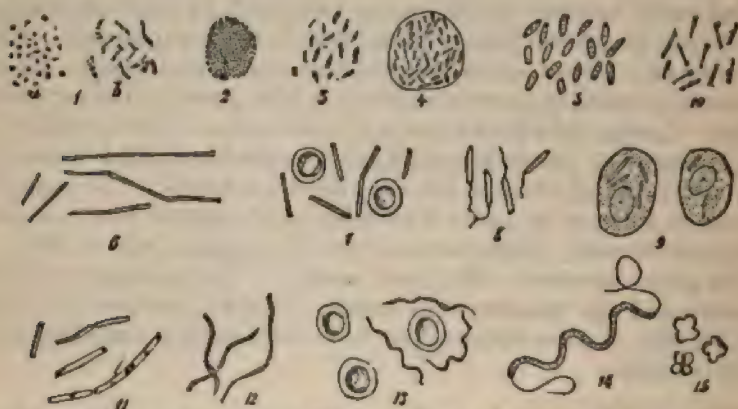 a
1 2 3 4 5 10
6 7 8 9
11 12 13 14 15